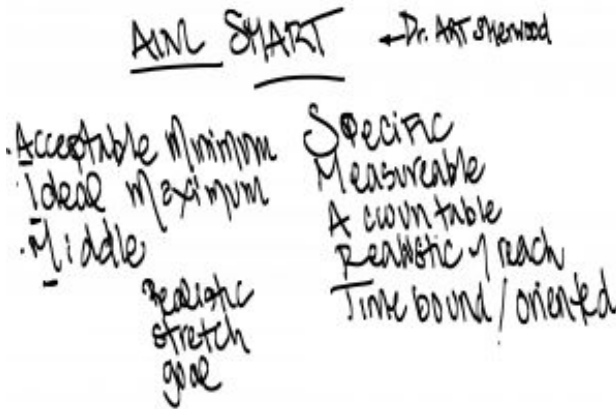 AIM SMART ← Dr. ART Sherwood
· Acceptable Minimum
· Ideal Maximum
· Middle
Realistic
stretch
goal
Specific
Measureable
Accountable
Realistic y reach
Time bound / oriented